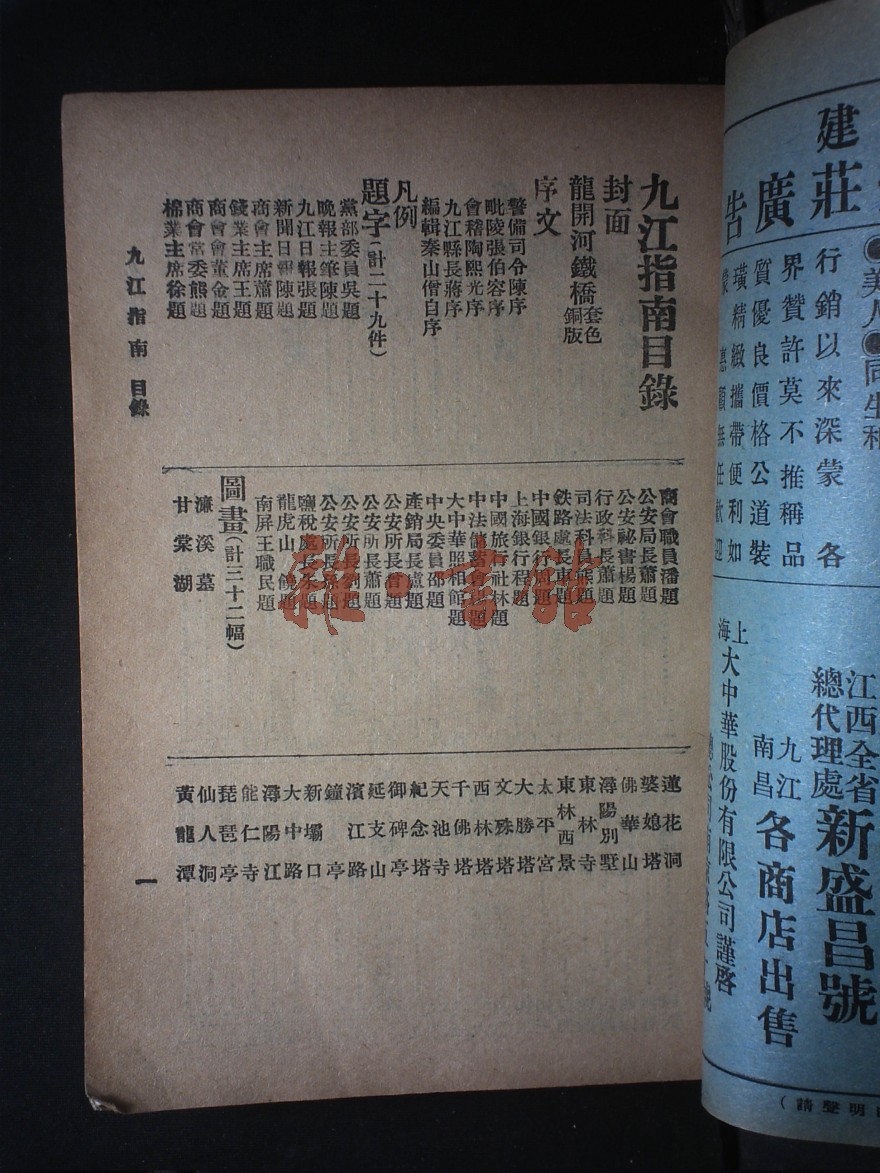 九江指南目錄
封面
龍開河鐵橋套色銅版
序文
警備司令陳序
毗陵張伯容序
會稽陶熙光序
九江縣長蔣序
編輯秦山僧自序
凡例
題字(計二十九件)
黨部委員吳題
晚報主筆陳題
九江日報張題
新聞日報陳題
商會主席蕭題
錢業主席王題
商會會董金題
商會常委熊題
棉業主席徐題
九江指南 目錄
商會職員潘題
公安局長蕭題
公安祕書楊題
行政科長蕭題
司法科員熊題
鐵路處長東題
中國銀行
上海銀行程題
中國旅行社林題
中法儲蓄
大中華照相館題
中央委員邵題
產銷局長盧題
公安所長
公安所長蕭題
公安所長
公安所長
鹽稅處長
龍虎山
南屏王職民題
圖畫(計三十二幅)
濂溪墓
甘棠湖
蓮花洞
婆媳塔
佛華山
潯陽別墅
東林寺
東林西景
太平宮
大勝塔
文殊塔
西林塔
千佛塔
天池寺
紀念塔
御碑亭
延支山
濱江路
鐘亭
新壩口
大中路
潯陽江
能仁寺
琵琶亭
仙人洞
黃龍潭
一
建
莊廣告
美人
同生和
行銷以來深蒙各
界贊許莫不推稱品
質優良價格公道裝
璜精緻攜帶便利如
蒙惠顧無任歡迎
江西全省
總代理處
新盛昌號
九江
南昌
各商店出售
上海大中華股份有限公司謹啓